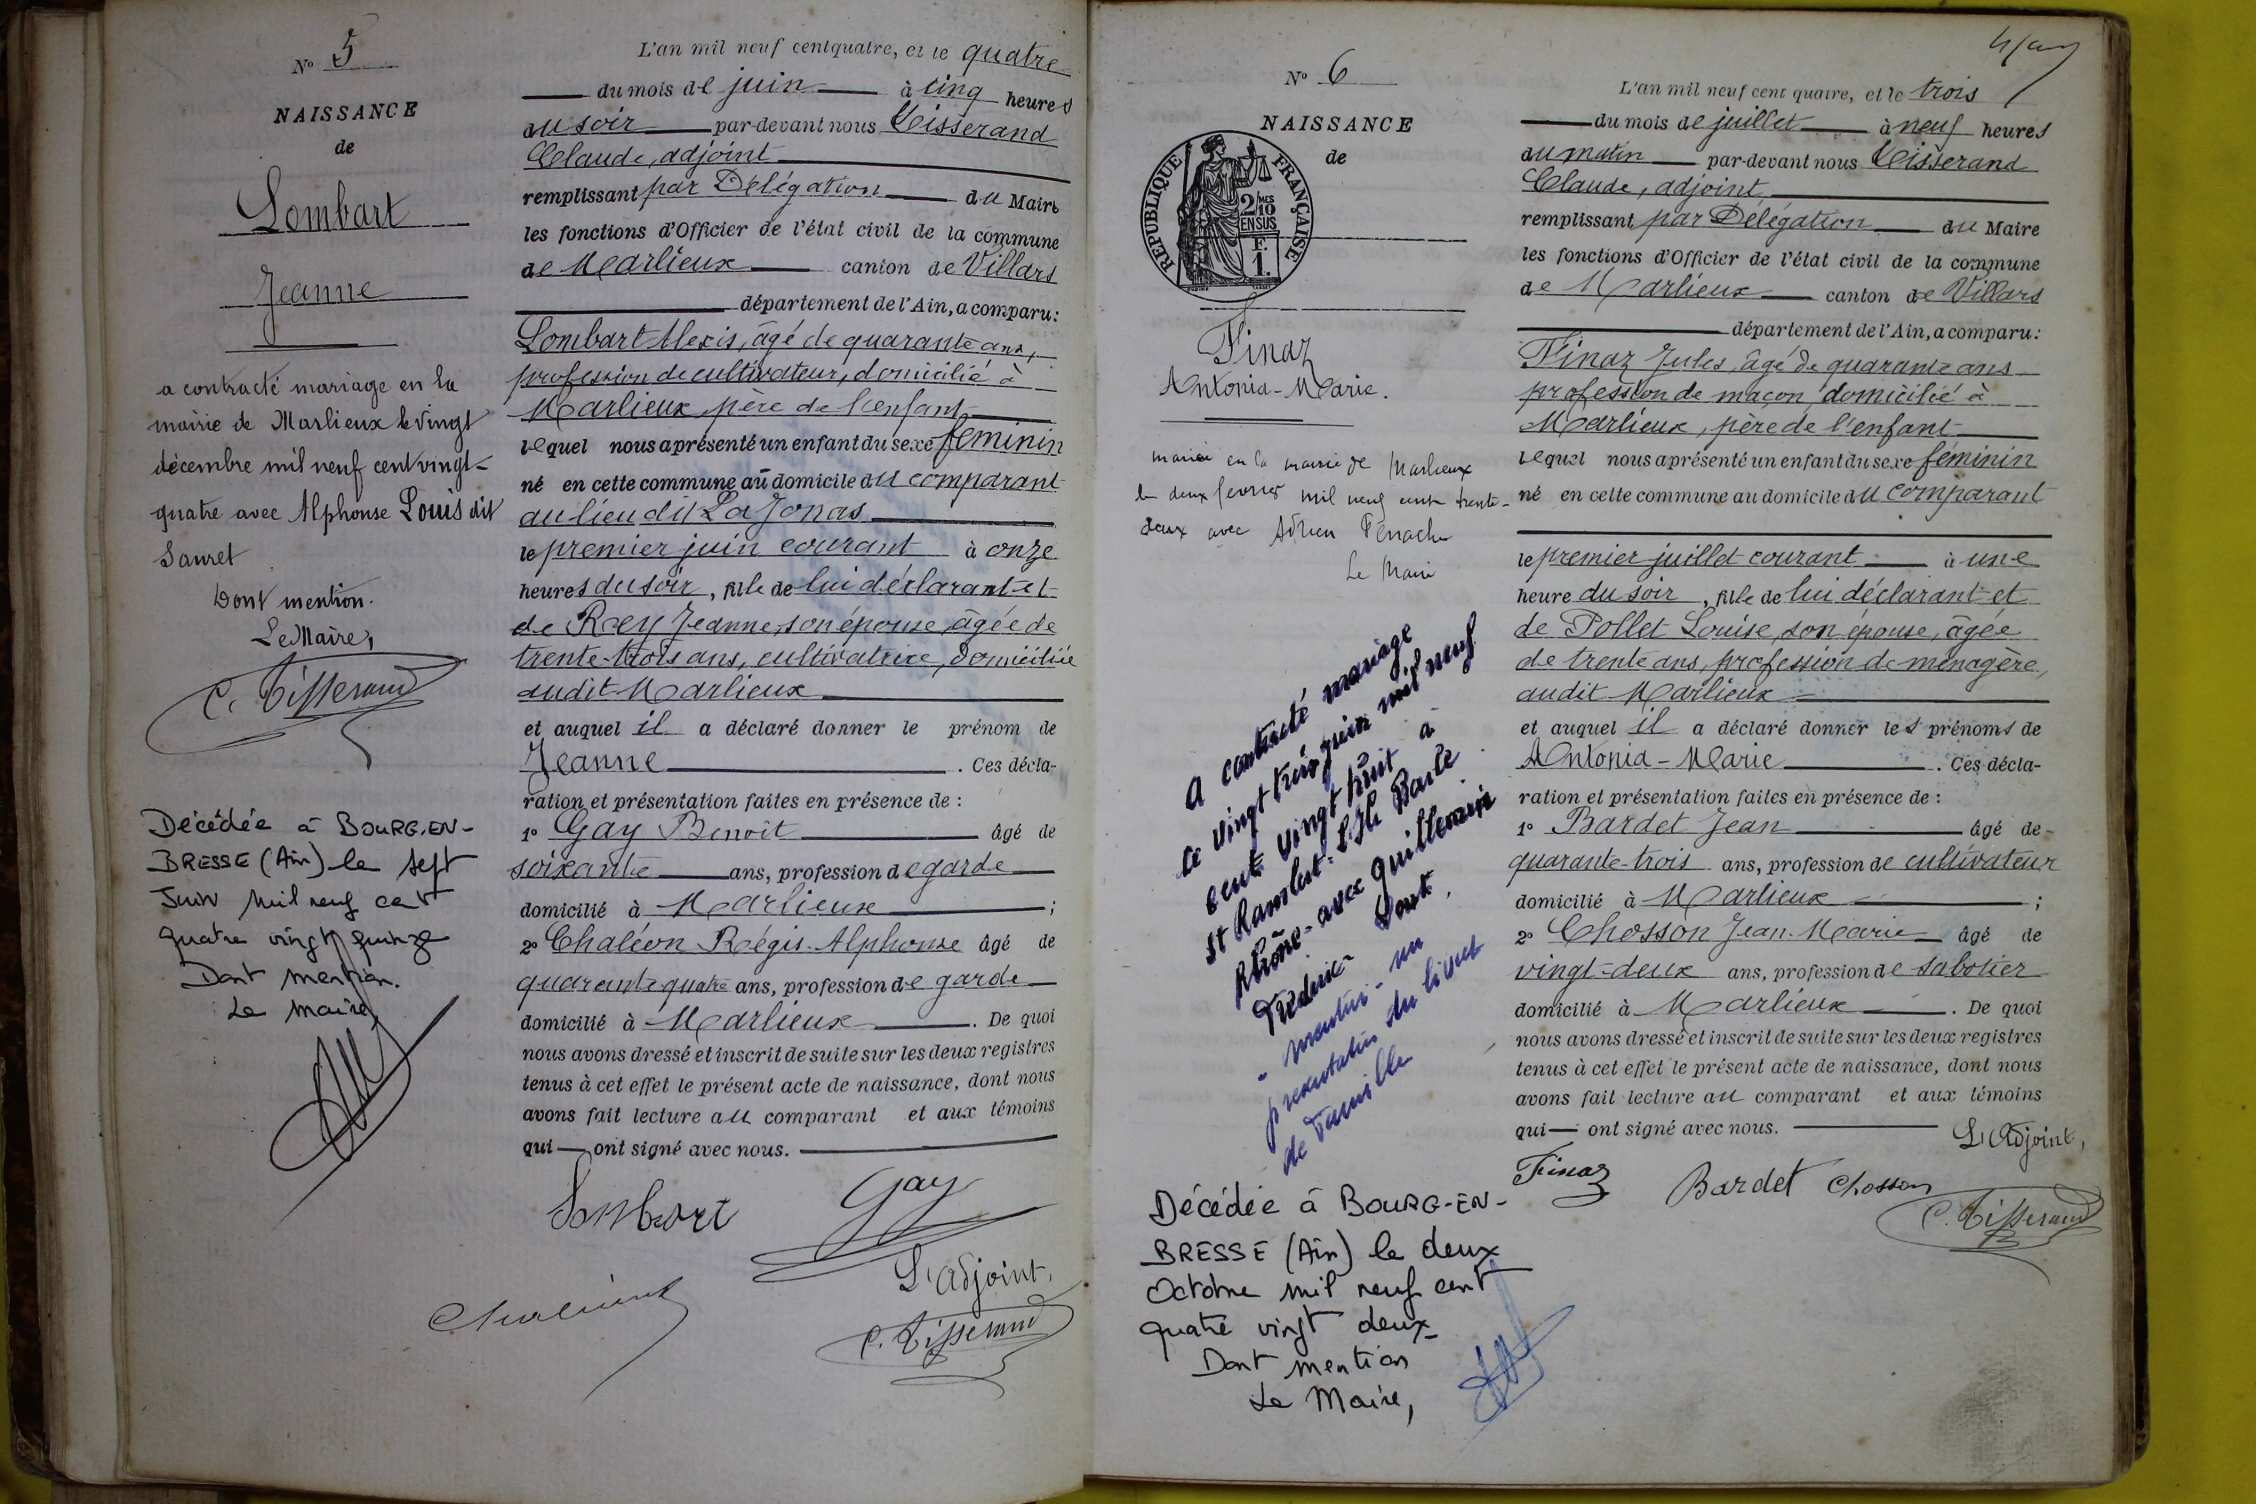 N° 5
NAISSANCE
de
Lombart
Jeanne
a contracté mariage en la
mairie de Marlieux le vingt
décembre mil neuf cent vingt-
quatre avec Alphonse Louis dit
Sauret
Dont mention.
Le Maire,
C. Tisserand
Décédée à BOURG-EN-
BRESSE (Ain) le sept
Juin mil neuf cent
quatre vingt quinze
Dont mention.
Le Maire,
L'an mil neuf cent quatre, et le quatre
du mois de juin à cinq heures
du soir par-devant nous Tisserand
Claude, adjoint
remplissant par Délégation du Maire
les fonctions d'Officier de l'état civil de la commune
de Marlieux canton de Villars
département de l'Ain, a comparu:
Lombart Alexis, âgé de quarante ans,
profession de cultivateur, domicilié à
Marlieux, père de l'enfant
lequel nous a présenté un enfant du sexe féminin
né en cette commune au domicile du comparant
au lieu dit La Jonas
le premier juin courant à onze
heures du soir, fille de lui déclarant et
de Rey Jeanne, son épouse, âgée de
trente-trois ans, cultivatrice, domiciliée
audit Marlieux
et auquel il a déclaré donner le prénom de
Jeanne. Ces décla-
ration et présentation faites en présence de :
1° Gay Benoît âgé de
soixante ans, profession de garde
domicilié à Marlieux ;
2° Chaléon Régis-Alphonse âgé de
quarante quatre ans, profession de garde
domicilié à Marlieux. De quoi
nous avons dressé et inscrit de suite sur les deux registres
tenus à cet effet le présent acte de naissance, dont nous
avons fait lecture au comparant et aux témoins
qui ont signé avec nous.
Lombart Gay
L'adjoint,
C. Tisserand
N° 6
NAISSANCE
de
REPUBLIQUE FRANÇAISE
2/10 MES
EN SUS
F.
1.
Finaz
Antonia-Marie.
mariée en la mairie de Marlieux
le deux février mil neuf cent trente-
deux avec Adrien
Le Maire
A contracté mariage
le vingt trois juin mil neuf
cent vingt huit à
St Rambert-L'Ile Barbe
Rhône - avec Guillermin
Frédéric Dont.
- mention - vu
présentation du livret
de Famille
Décédée à BOURG-EN-
BRESSE (Ain) le deux
Octobre mil neuf cent
quatre vingt deux
Dont mention
Le Maire,
L'an mil neuf cent quatre, et le trois
du mois de juillet à neuf heures
du matin par-devant nous Tisserand
Claude, adjoint
remplissant par Délégation du Maire
les fonctions d'Officier de l'état civil de la commune
de Marlieux canton de Villars
département de l'Ain, a comparu:
Finaz Jules, âgé de quarante ans
profession de maçon domicilié à
Marlieux, père de l'enfant
lequel nous a présenté un enfant du sexe féminin
né en cette commune au domicile du comparant
le premier juillet courant à une
heure du soir, fille de lui déclarant et
de Pollet Louise, son épouse, âgée
de trente ans, profession de ménagère,
audit Marlieux
et auquel il a déclaré donner les prénoms de
Antonia-Marie. Ces décla-
ration et présentation faites en présence de :
1° Bardet Jean âgé de
quarante-trois ans, profession de cultivateur
domicilié à Marlieux ;
2° Chosson Jean-Marie âgé de
vingt-deux ans, profession de sabotier
domicilié à Marlieux. De quoi
nous avons dressé et inscrit de suite sur les deux registres
tenus à cet effet le présent acte de naissance, dont nous
avons fait lecture au comparant et aux témoins
qui ont signé avec nous.
L'adjoint,
Finaz Bardet Chosson
C. Tisserand